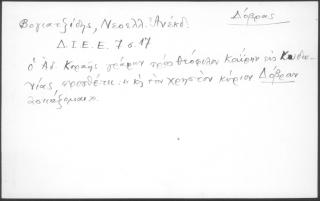 Δόβρας
Βογιατζίδης, Νεοελλ. Ἀνέκδ.
Δ.Ι.Ε.Ε. 7 σ. 17
ὁ Ἀδ. Κοραῆς γράφων πρὸς Θεόφιλον Καΐρην εἰς Κυδω-
νίας προσθέτει "κ τὸν χρηστὸν κύριον Δόβραν
ἀσπάζομαι".